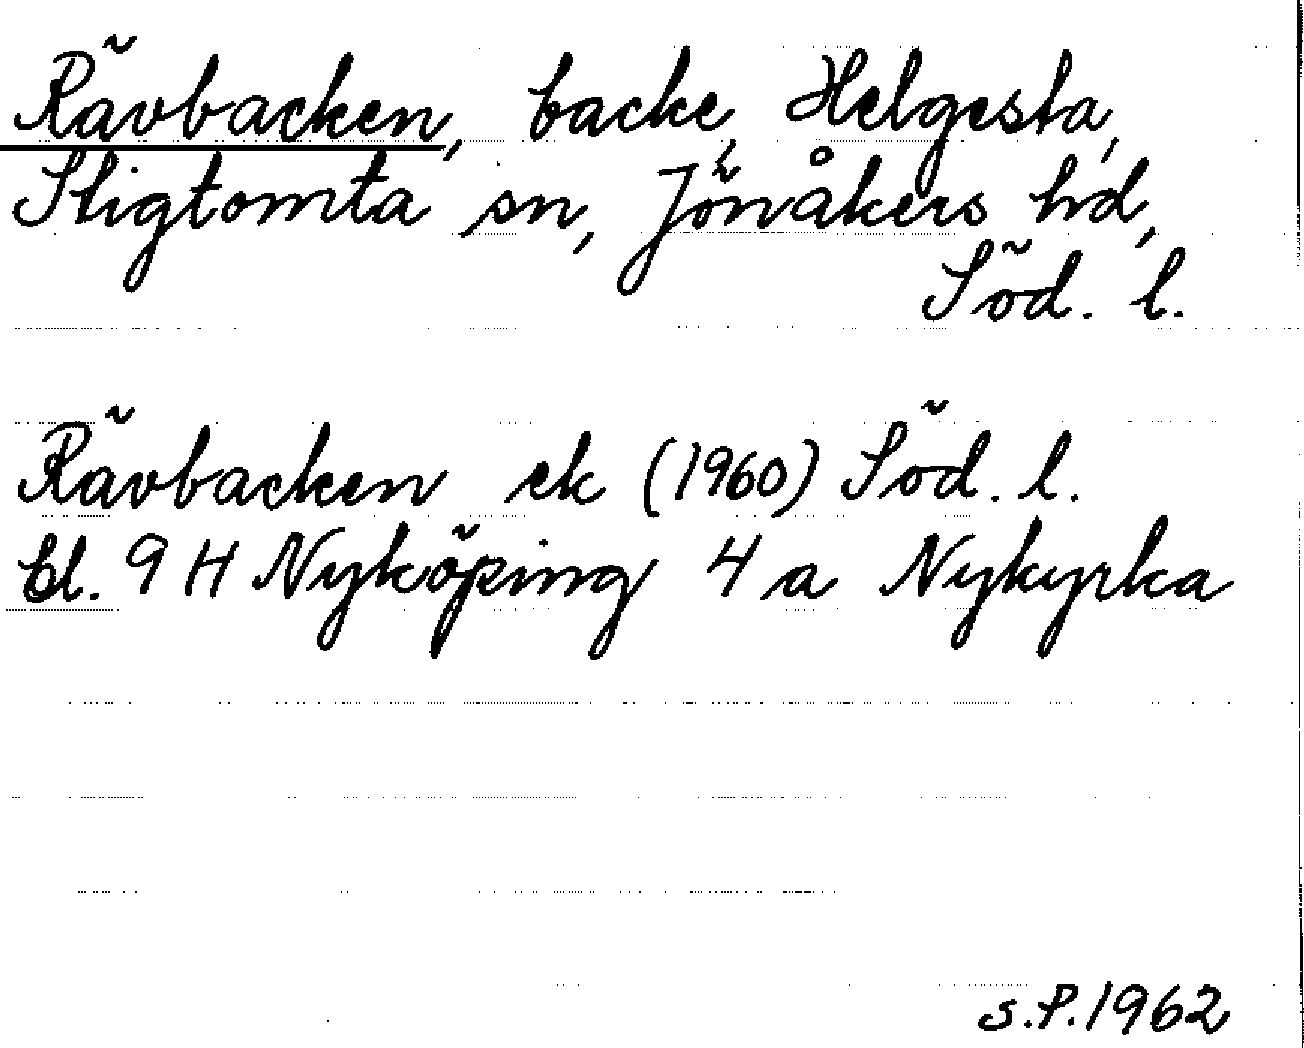 Rävbacken, backe, Helgesta,
Stigtomta sn, Jönåkers hd,
Söd. l.
Rävbacken ek (1960) Söd. l.
bl. 9 H Nyköping 4 a Nykyrka
S.P.1962